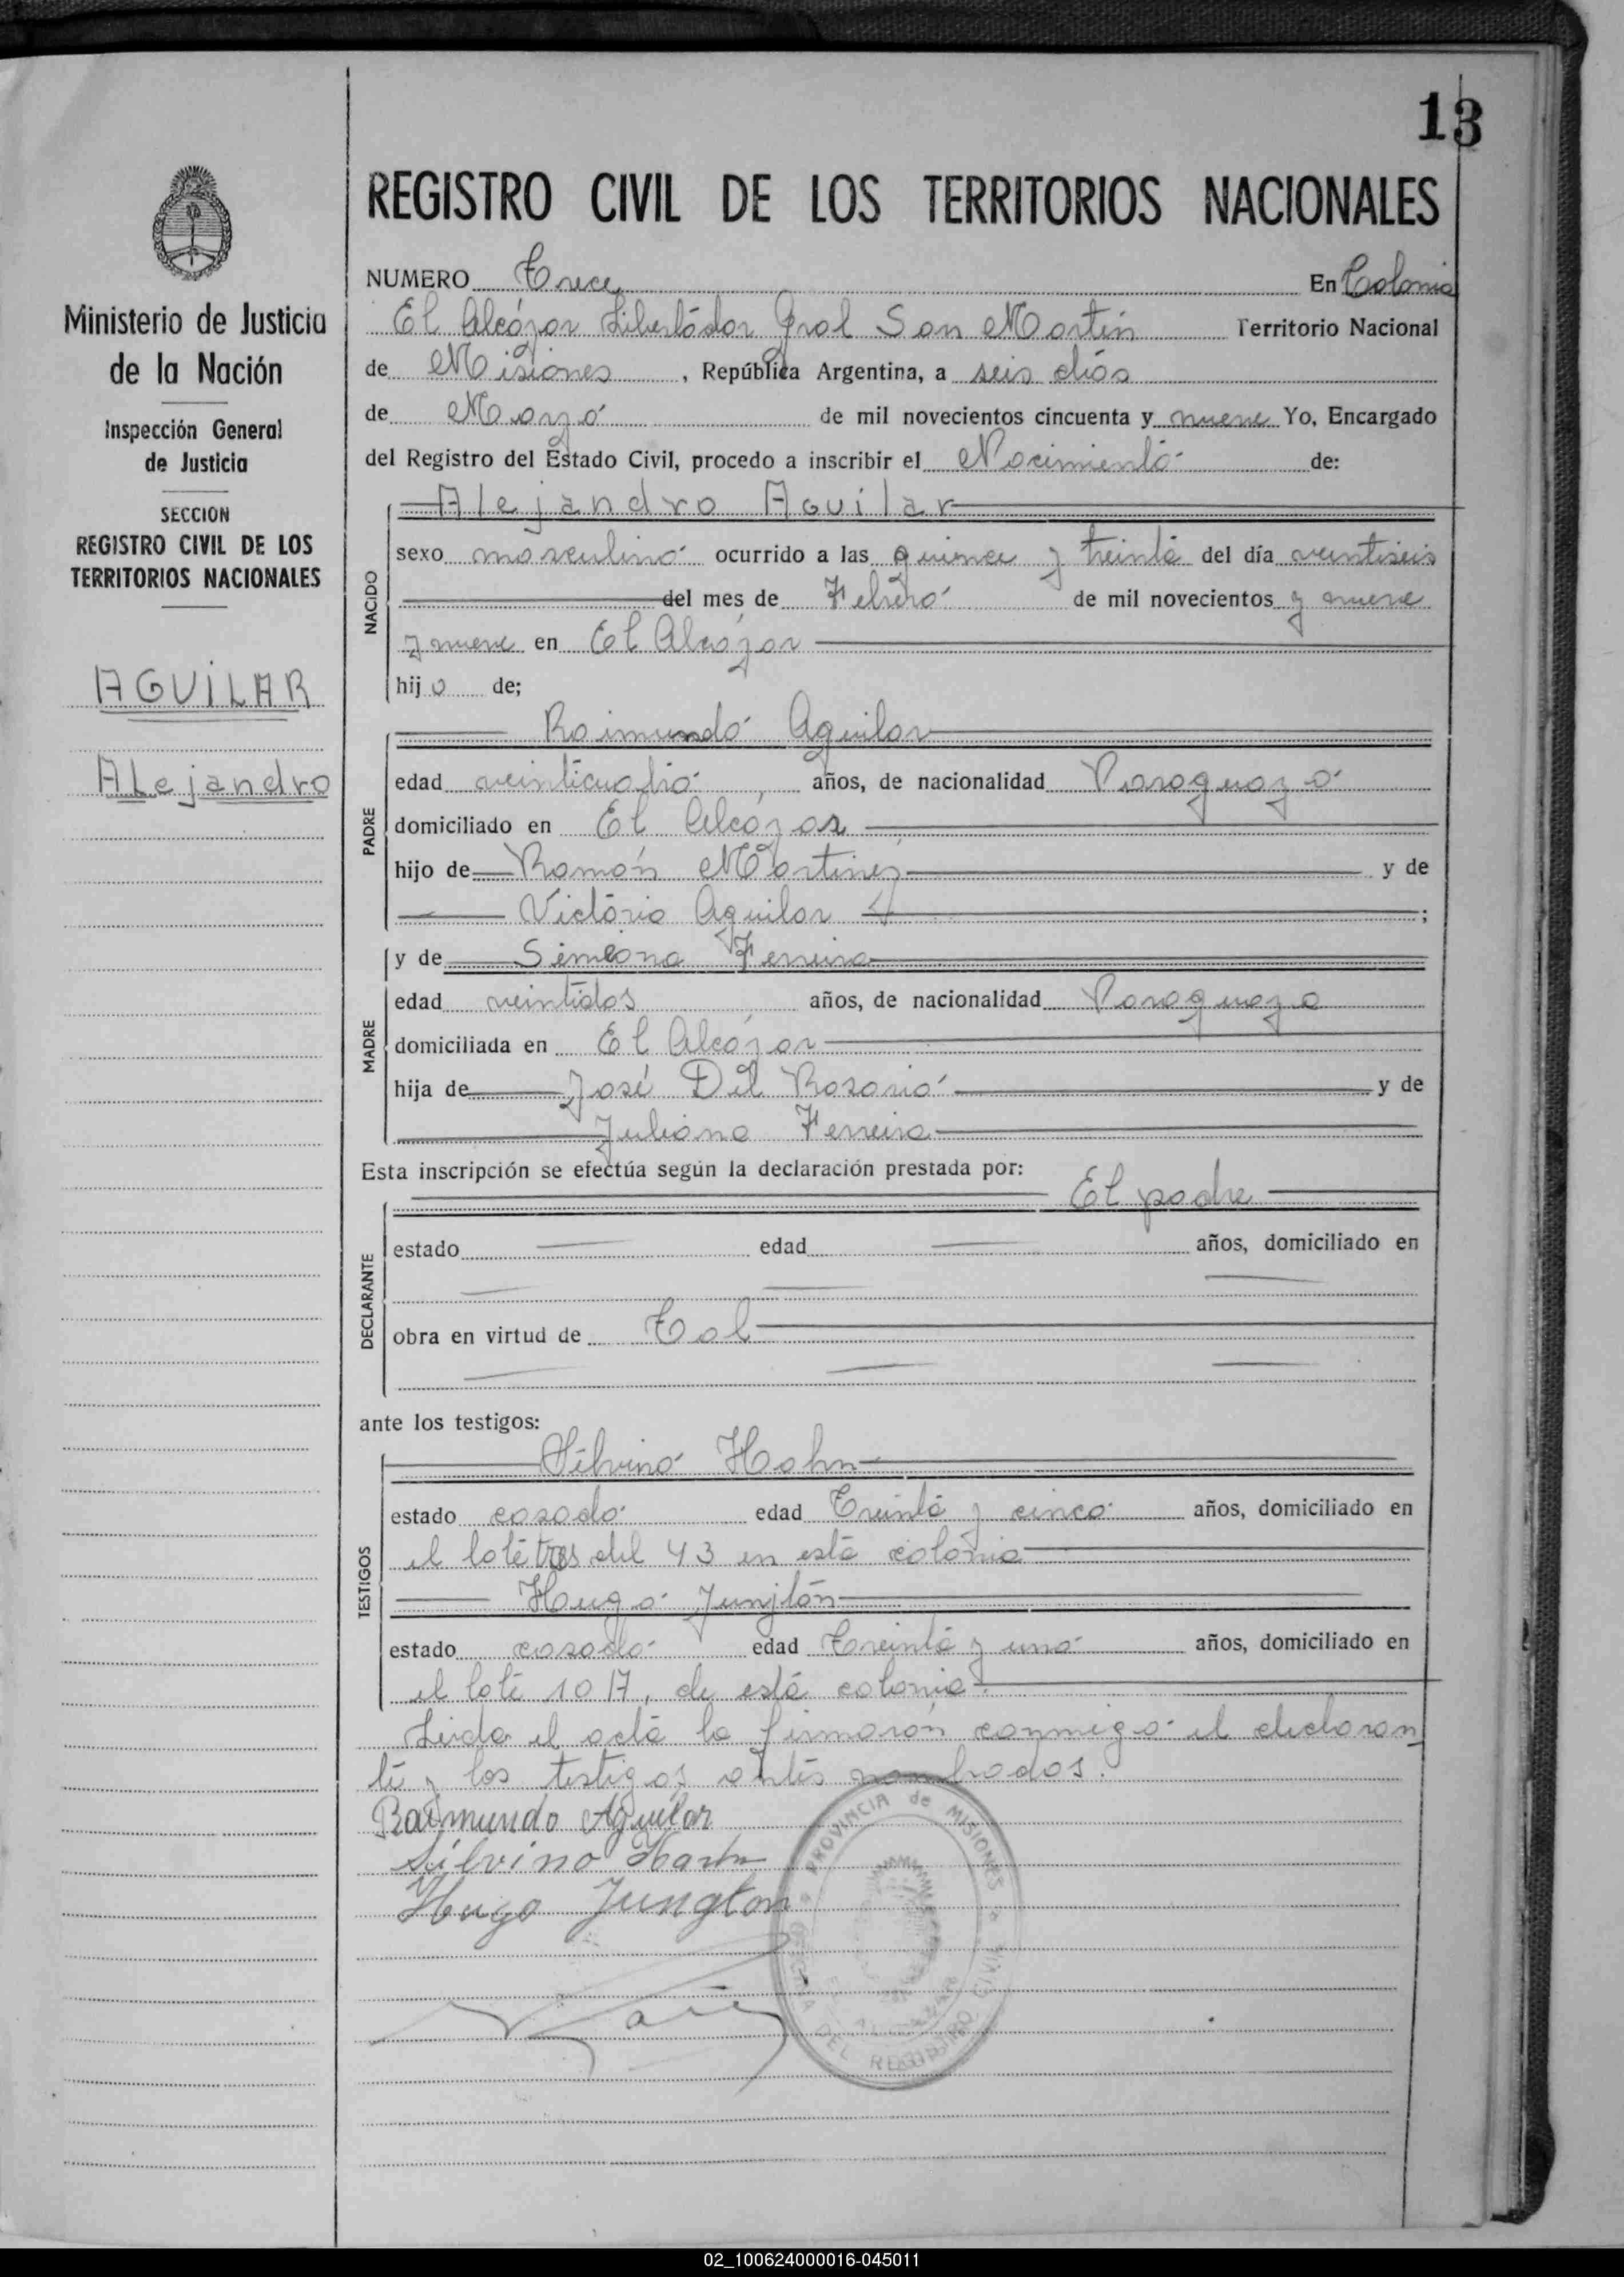 13
REGISTRO CIVIL DE LOS TERRITORIOS NACIONALES
Ministerio de Justicia
de la Nación
Inspección General
de Justicia
SECCION
REGISTRO CIVIL DE LOS
TERRITORIOS NACIONALES
AGUILAR
ALejandro
NUMERO Trece En Colonia
El Alcázar Libertador Gral San Martín Territorio Nacional
de Misiones, República Argentina, a seis días
de Marzo de mil novecientos cincuenta y nueve Yo, Encargado
del Registro del Estado Civil, procedo a inscribir el Nacimiento de:
Alejandro Aguilar
NACIDO
sexo masculino ocurrido a las quince y treinta del día veintiseis
del mes de Febrero de mil novecientos y nueve
y nueve en El Alcázar
hijo de;
Raimundo Aguilar
PADRE
edad veinticuatro años, de nacionalidad Paraguayo
domiciliado en El Alcázar
hijo de Ramón Martinez y de
Victoria Aguilar ;
y de Simeona Ferreira
MADRE
edad veintidos años, de nacionalidad Paraguaya
domiciliada en El Alcázar
hija de José Del Rosario y de
Juliana Ferreira
Esta inscripción se efectúa según la declaración prestada por:
El padre
DECLARANTE
estado edad años, domiciliado en
obra en virtud de Tal
ante los testigos:
Silvino Hahn
TESTIGOS
estado casado edad Treinta y cinco años, domiciliado en
el lote tres del 43 en esta colonia
Hugo Junjton
estado casado edad Treinta y uno años, domiciliado en
el lote 10 17, de esta colonia.
Leida el acta la firmaron conmigo el declaran
te y los testigos antes nombrados.
Raimundo Aguilar
Silvino Hahn
Hugo Jungton
PROVINCIA de MISIONES
DEL REGISTRO
02_100624000016-045011